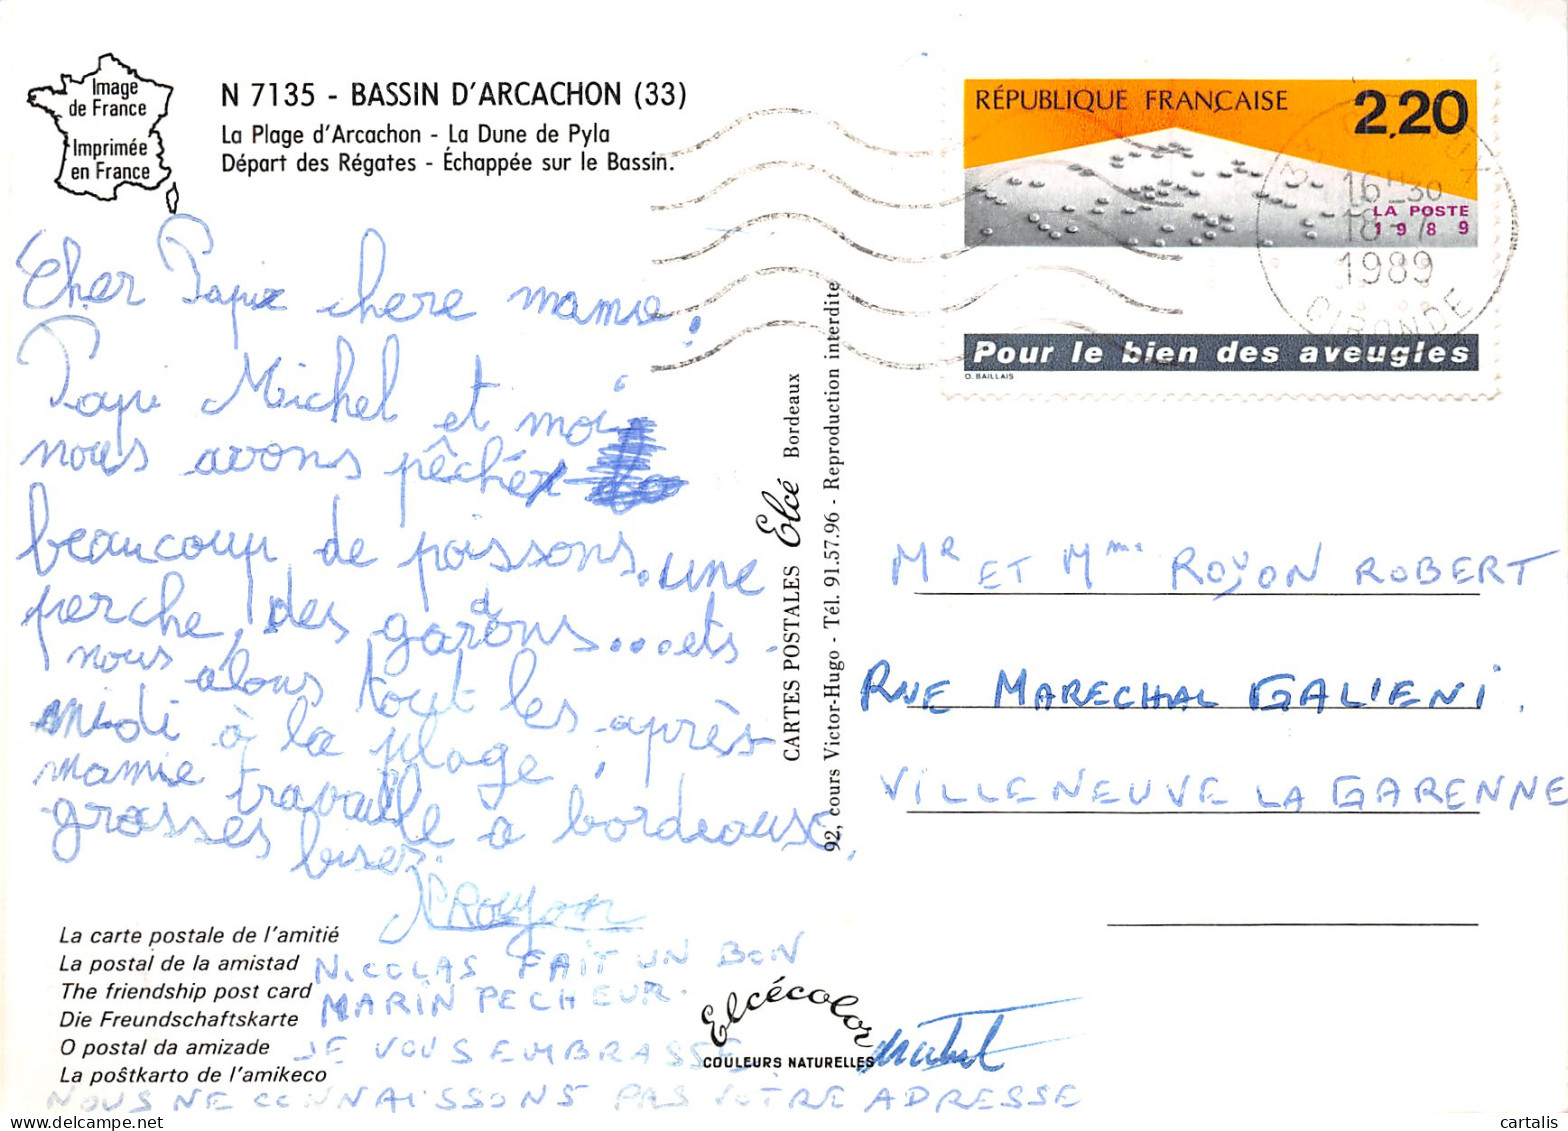 Image
de France
Imprimée
en France
N 7135 - BASSIN D'ARCACHON (33)
La Plage d'Arcachon - La Dune de Pyla
Départ des Régates - Échappée sur le Bassin.
RÉPUBLIQUE FRANÇAISE 2,20
LA POSTE
1989
Pour le bien des aveugles
O. BAILLAIS
16H30
18-7
1989
GIRONDE
Cher Papi chere mamie,
Papi Michel et moi
nous avons pêché
beaucoup de poissons. une
perche, des gardons...ets.
nous alons tout les après
midi à la plage,
mamie travaille à bordeause,
grosses bises.
N Royon
NICOLAS FAIT UN BON
MARIN PECHEUR.
JE VOUS EMBRASSE
NOUS NE CONNAISSONS PAS VOTRE ADRESSE
La carte postale de l'amitié
La postal de la amistad
The friendship post card
Die Freundschaftskarte
O postal da amizade
La poŝtkarto de l'amikeco
Elcécolor
COULEURS NATURELLES
CARTES POSTALES Elcé Bordeaux
92, cours Victor-Hugo - Tél. 91.57.96 - Reproduction interdite
MR ET Mme ROYON ROBERT
RUE MARECHAL GALIENI.
VILLENEUVE LA GARENNE
cartalis